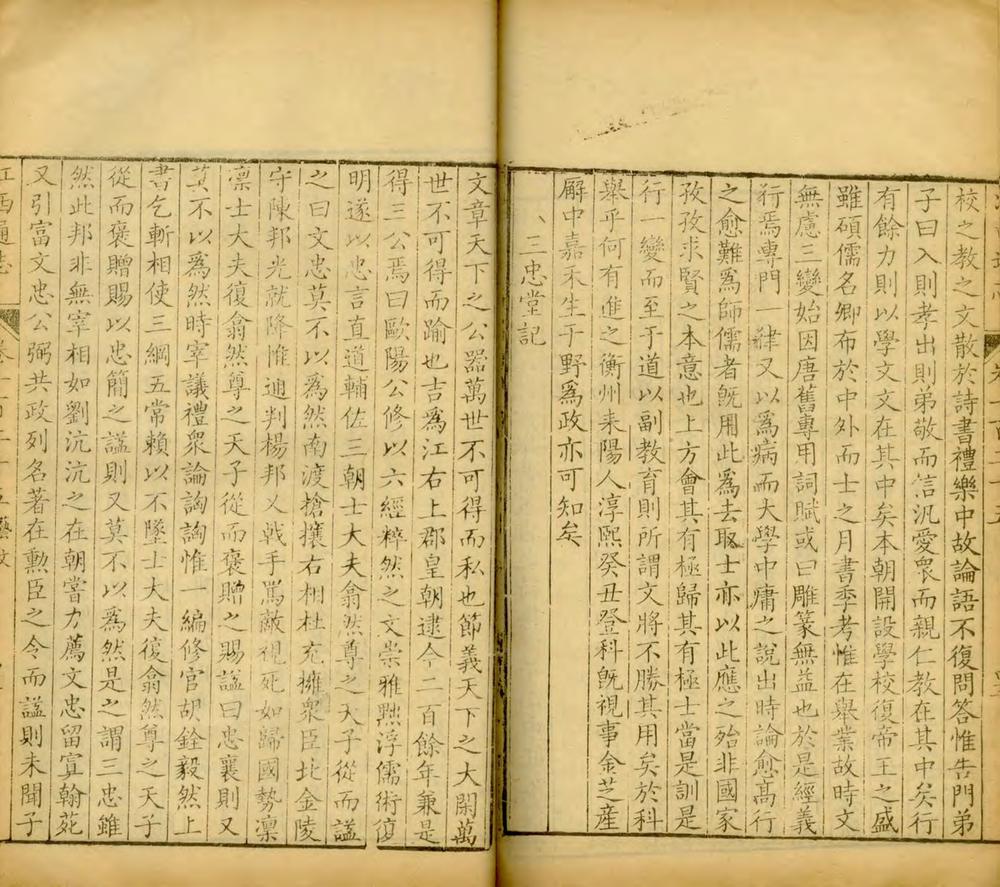 校之教之文散於詩書禮樂中故論語不復問答惟告門弟
子曰入則孝出則弟敬而信汎愛衆而親仁教在其中矣行
有餘力則以學文文在其中矣本朝開設學校復帝王之盛
雖碩儒名卿布於中外而士之月書季考惟在舉業故時文
無慮三變始因唐舊專用詞賦或曰雕篆無益也於是經義
行焉專門一律又以為病而大學中庸之說出時論愈高行
之愈難為師儒者既用此為去取士亦以此應之殆非國家
孜孜求賢之本意也上方會其有極歸其有極士當是訓是
行一變而至于道以副教育則所謂文將不勝其用矣於科
舉乎何有進之衡州耒陽人淳熙癸丑登科既視事金芝產
廨中嘉禾生于野為政亦可知矣
三忠堂記
文章天下之公器萬世不可得而私也節義天下之大閑萬
世不可得而踰也吉為江右上郡皇朝逮今二百餘年兼是
得三公焉曰歐陽公修以六經粹然之文崇雅黜浮儒術復
明遂以忠言直道輔佐三朝士大夫翕然尊之天子從而諡
之曰文忠莫不以為然南渡搶攘右相杜充擁衆臣北金陵
守陳邦光就降惟通判楊邦乂戟手罵敵視死如歸國勢凜
凜士大夫復翕然尊之天子從而褒贈之賜諡曰忠襄則又
莫不以為然時宰議禮衆論訩訩惟一編修官胡銓毅然上
書乞斬相使三綱五常賴以不墜士大夫復翕然尊之天子
從而褒贈賜以忠簡之諡則又莫不以為然是之謂三忠雖
然此邦非無宰相如劉沆沆之在朝嘗力薦文忠留寘翰苑
又引富文忠公弼共政列名著在勲臣之令而諡則未聞子
江西通志